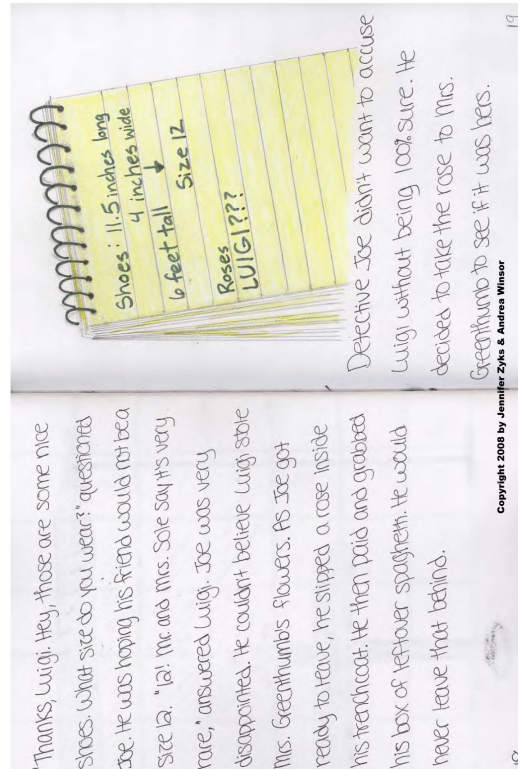 "Thanks, Luigi. Hey, those are some nice
shoes. What size do you wear?" questioned
Joe. He was hoping his friend would not be a
size 12. "12! Mr. and Mrs. Sole say it's very
rare," answered Luigi. Joe was very
disappointed. He couldn't believe Luigi stole
Mrs. Greenthumb's flowers. As Joe got
ready to leave, he slipped a rose inside
his trenchcoat. He then paid and grabbed
his box of leftover spaghetti. He would
never leave that behind.
18
Shoes: 11.5 inches long
4 inches wide
6 feet tall ↓
Size 12
Roses
LUIGI???
Detective Joe didn't want to accuse
Luigi without being 100% sure. He
decided to take the rose to Mrs.
Greenthumb to see if it was hers.
19
Copyright 2008 by Jennifer Zyks & Andrea Winsor